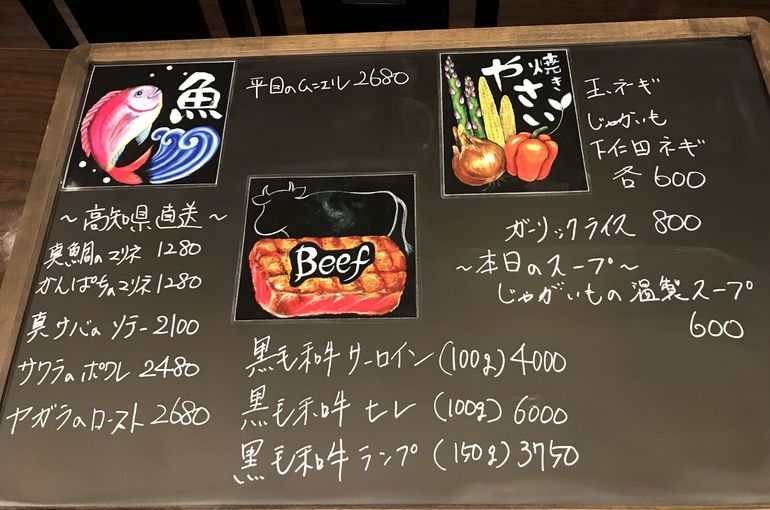 魚
平目のムニエル 2680
～高知県直送～
真鯛のマリネ 1280
かんぱちのマリネ 1280
真サバのソテー 2100
サワラのポワレ 2480
ヤガラのロースト 2680
Beef
黒毛和牛サーロイン (100g) 4000
黒毛和牛ヒレ (100g) 6000
黒毛和牛ランプ (150g) 3750
焼き
やさい
玉ネギ
じゃがいも
下仁田ネギ
各600
ガーリックライス 800
～本日のスープ～
じゃがいもの温製スープ
600